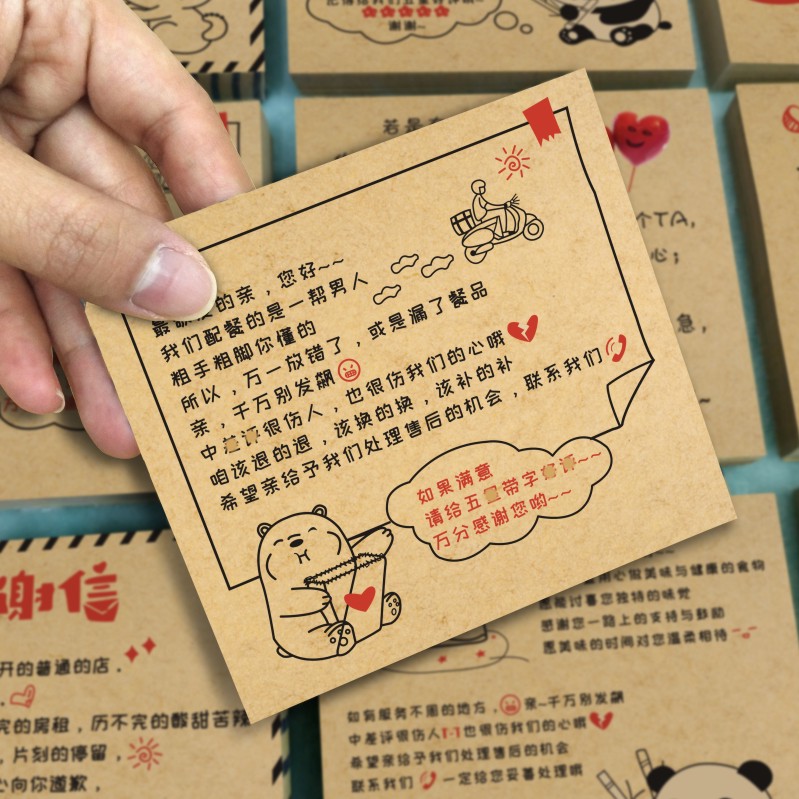 把请给我们五星好评哦~
谢谢~
若是
个TA,
心；
急，
的亲，您好~~
我们配餐的是一帮男人
粗手粗脚你懂的
所以，万一放错了，或是漏了餐品
亲，千万别发飙
中差评很伤人，也很伤我们的心哦
咱该退的退，该换的换，该补的补
希望亲给予我们处理售后的机会，联系我们
如果满意
请给五 带字 ~~
万分感谢您哟~~
谢信
开的普通的店．
完的房租，历不完的酸甜苦辣
，片刻的停留，
心向你道歉，
用心做美味与健康的食物
愿能讨喜您独特的味觉
感谢您一路上的支持与鼓励
愿美味的时间对您温柔相待
如有服务不周的地方， 亲~千万别发飙
中差评很伤人T-T也很伤我们的心哦
希望亲给予我们处理售后的机会
联系我们 一定给您妥善处理哦